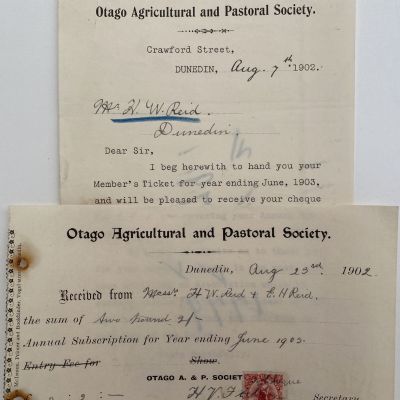 Otago Agricultural and Pastoral Society.
Crawford Street,
DUNEDIN, Aug. 7th 1902.
Mr H. W. Reid.
Dunedin.
Dear Sir,
I beg herewith to hand you your
Member's Ticket for year ending June, 1903,
and will be pleased to receive your cheque
Otago Agricultural and Pastoral Society.
Dunedin, Aug 23rd. 1902
Received from Messrs H W Reid & C. H Reid.
the sum of two pound 2/-
Annual Subscription for Year ending June 1903.
Entry Fee for Show.
OTAGO A. & P. SOCIET
£2 : 2 : — Secretary